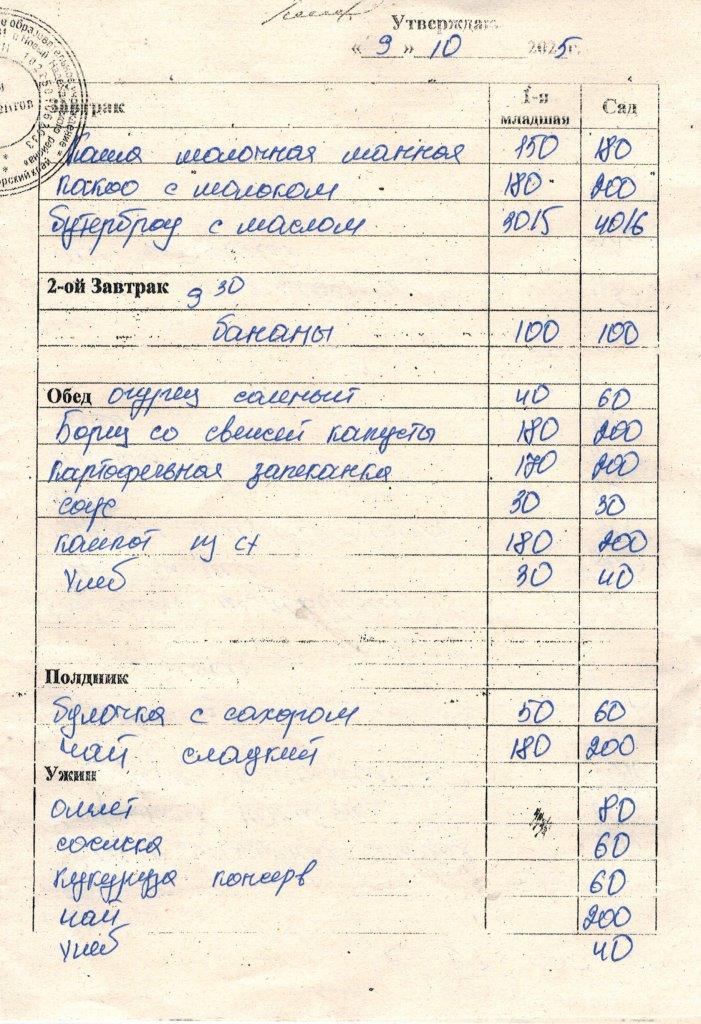 Утверждаю
« 9 » 10 2025г.
Завтрак 1-я младшая Сад
Каша молочная манная 150 180
Какао с молоком 180 200
бутерброд с маслом 3015 4016
2-ой Завтрак 9 30
бананы 100 100
Обед огурец соленый 40 60
Борщ со свежей капусты 180 200
Картофельная запеканка 170 200
соус 30 30
Компот из сх 180 200
Хлеб 30 40
Полдник
булочка с сахором 50 60
Чай сладкий 180 200
Ужин
омлет 80
сосиска 60
Кукуруза консерв 60
чай 200
Хлеб 40